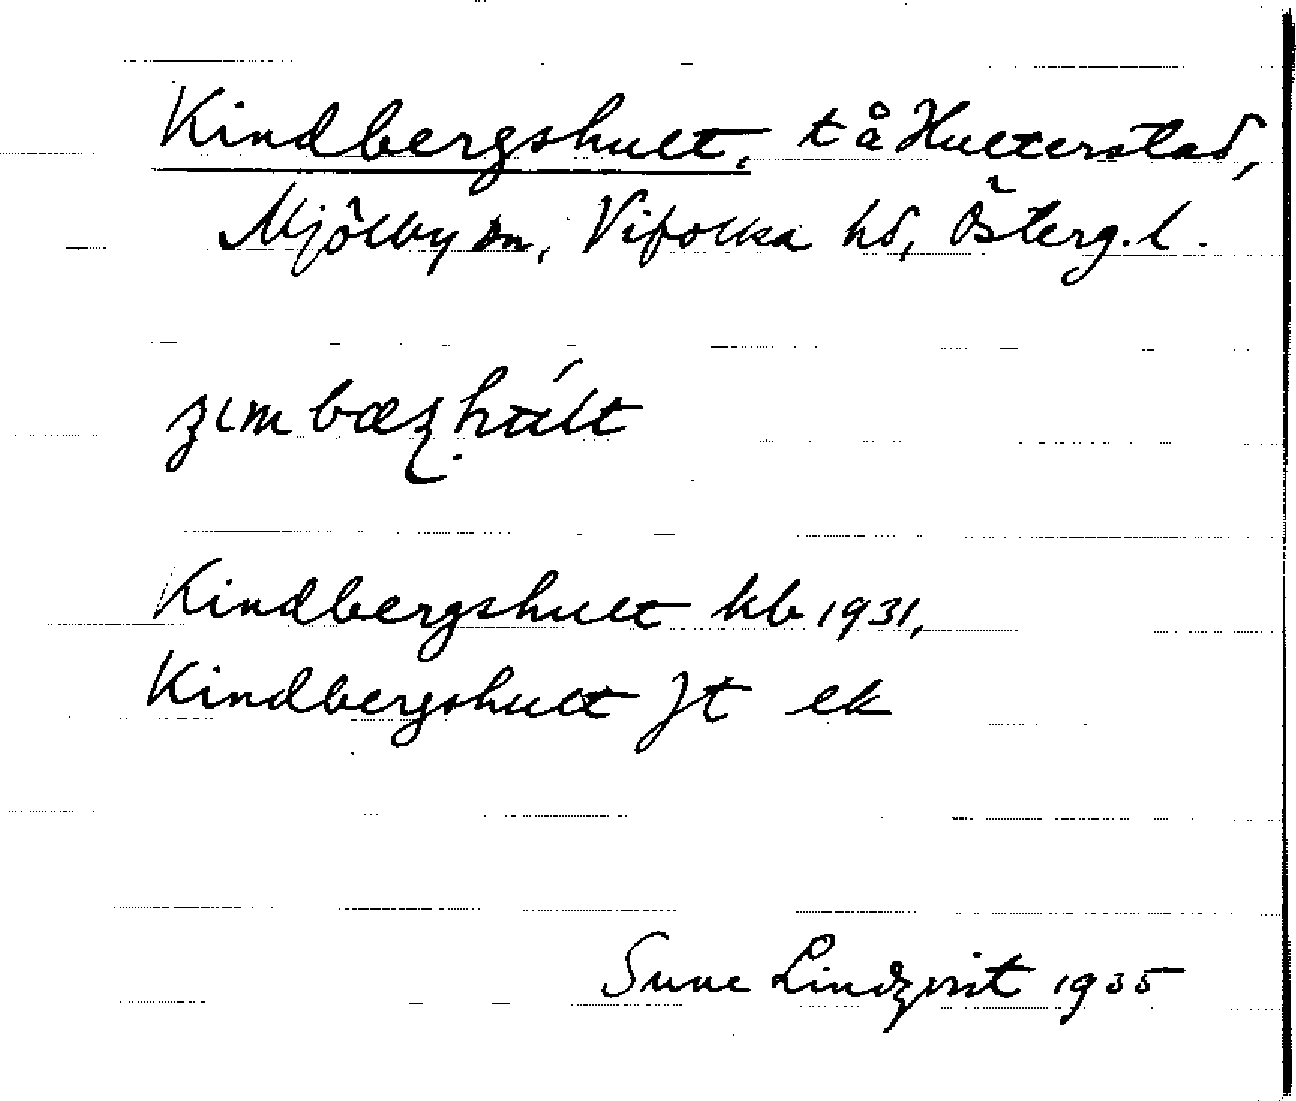 Kindbergshult, t å Hulterstad,
Mjölby sn, Vifolka hd, Österg.l.
Kindbergshult kb 1931,
Kindbergshult Jt ek
Sune Lindqvist 1935